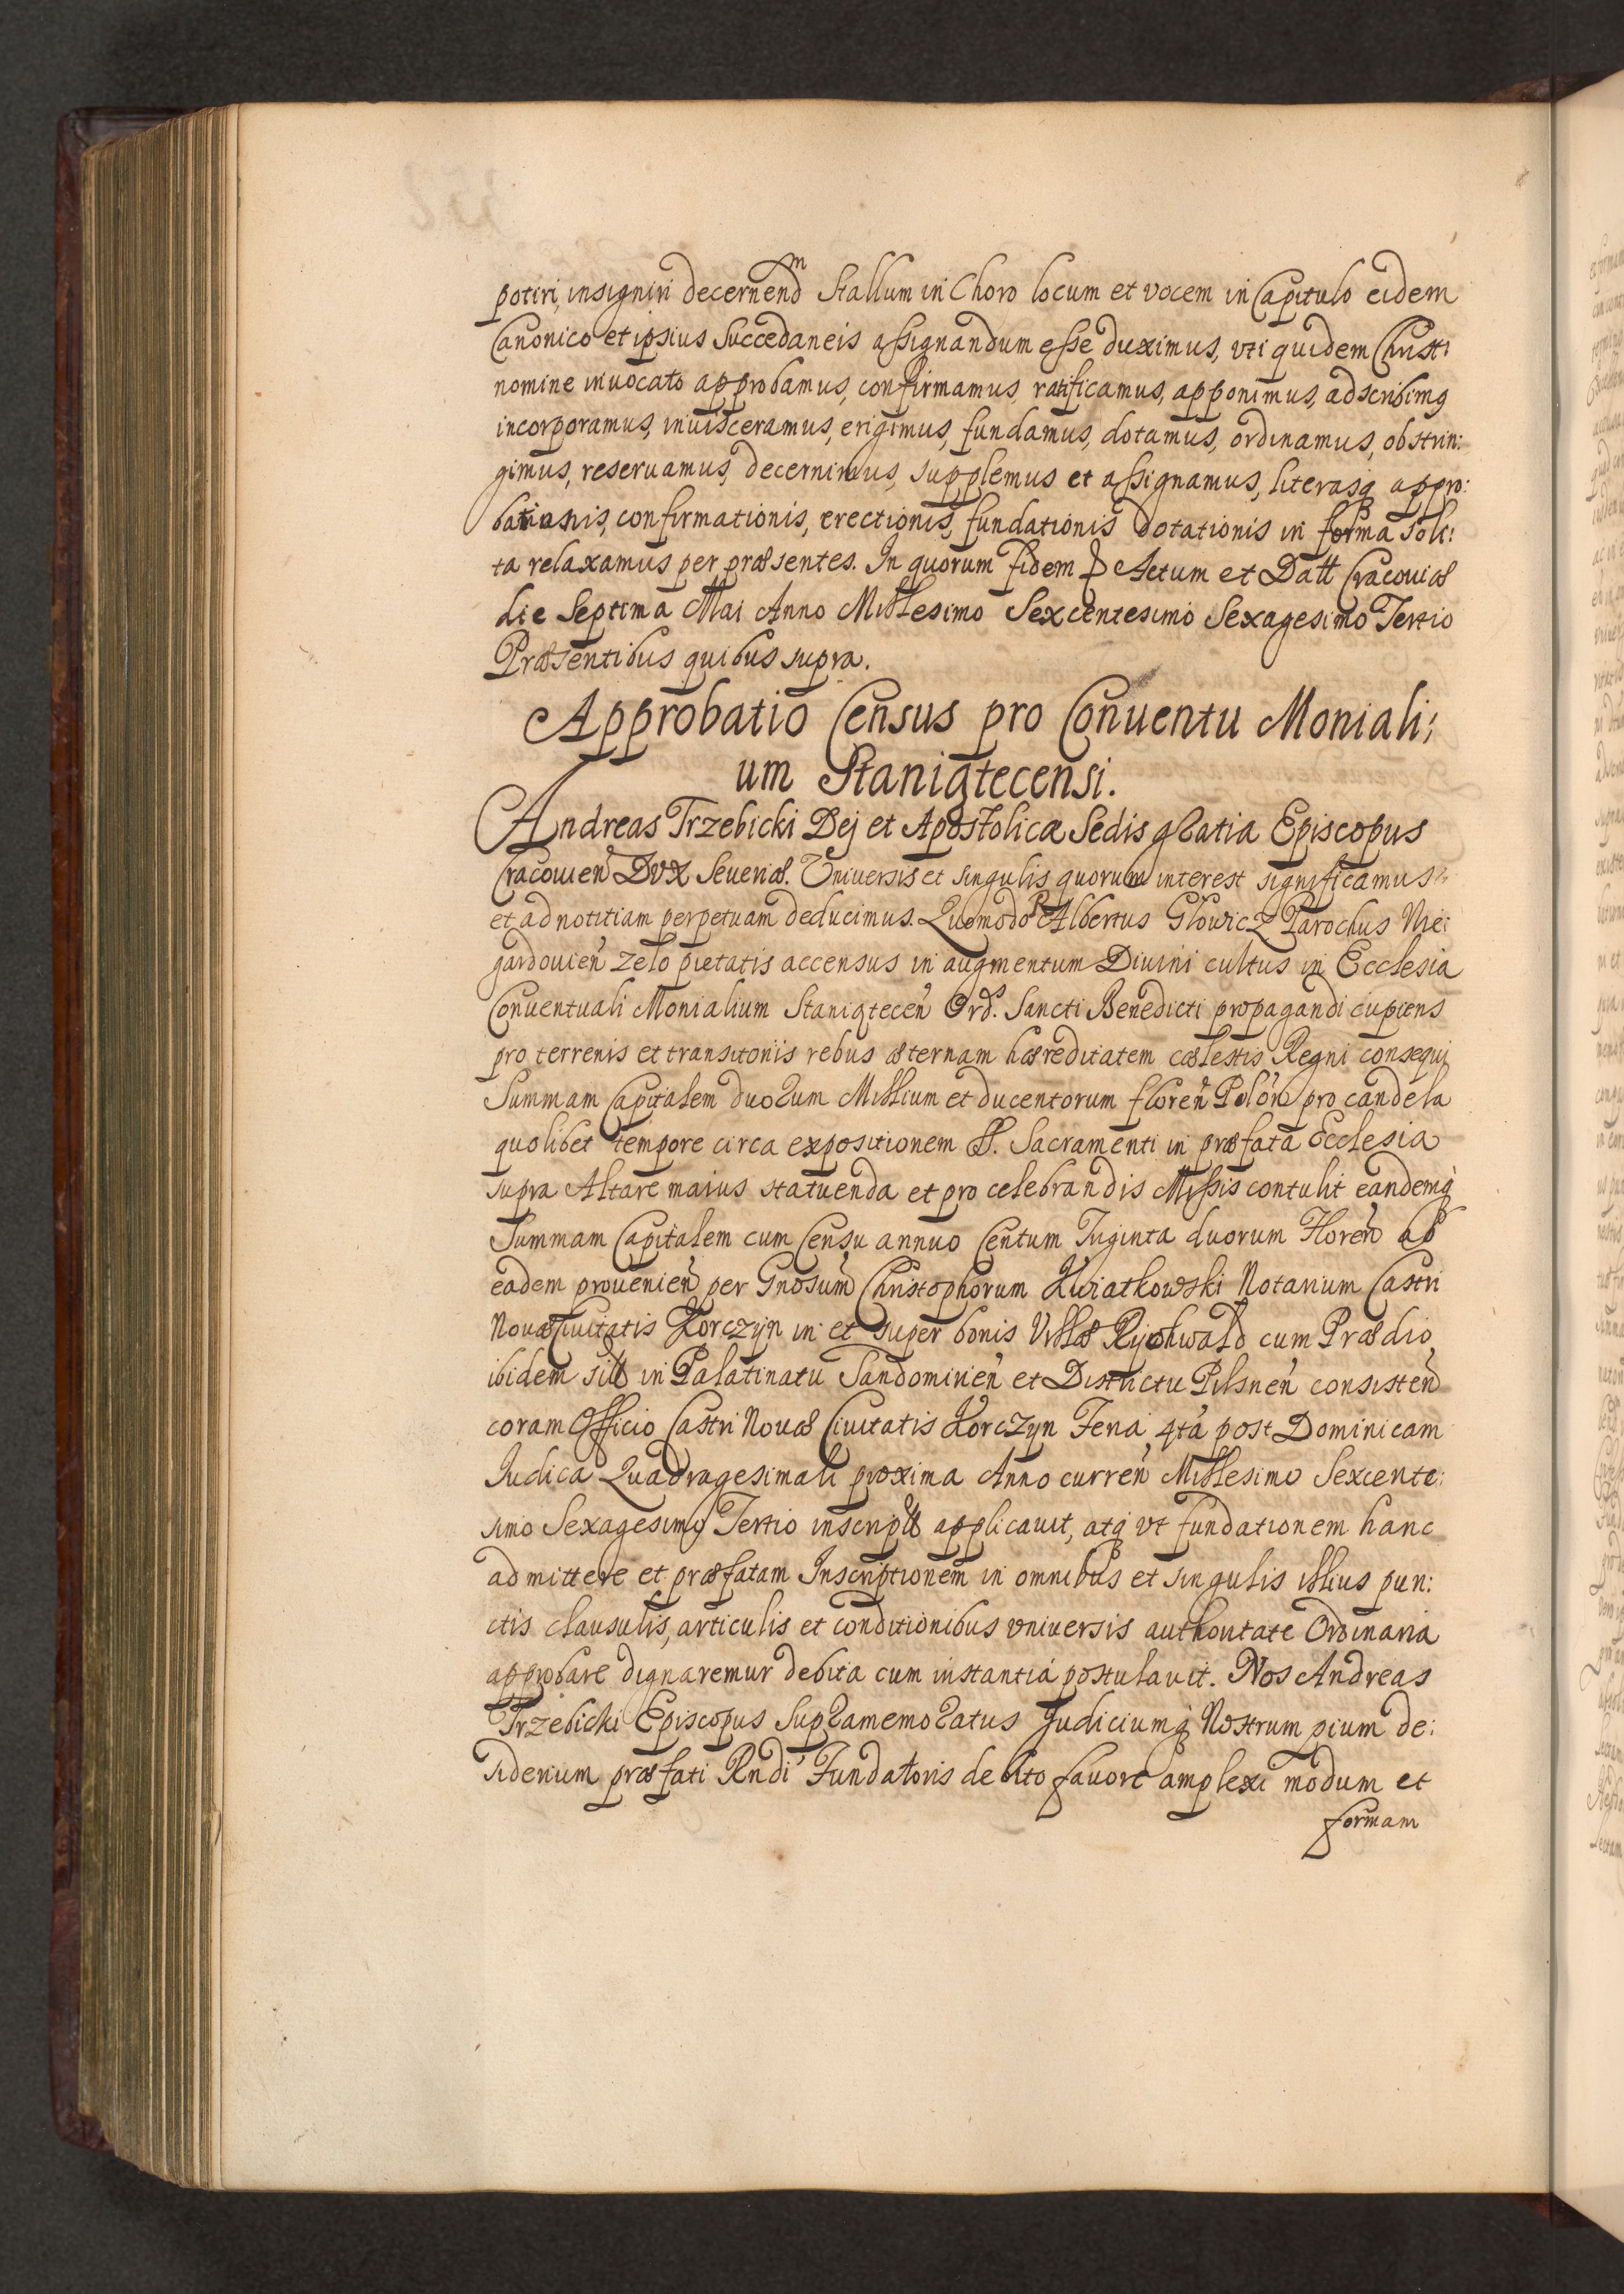 potiri, insigniri decernend<sup>m</sup> Stallum in Choro locum et vocem in Capitulo eidem
Canonico et ipsius Succedaneis assignandum esse duximus, vti quidem Christi
nomine inuocato approbamus, confirmamus, ratificamus, apponimus, adscribimq
incorporamus, inuisceramus, erigimus, fundamus, dotamus, ordinamus, obstrin:
gimus, reseruamus, decernimus, supplemus et assignamus, literasq appro:
bationis, confirmationis, erectionis, fundationis dotationis in forma soli:
ta relaxamus per præsentes. In quorum fidem Actum et Datt Cracouiæ
die Septima Mai Anno Millesimo Sexcentesimo Sexagesimo Tertio
Præsentibus quibus supra.
Approbatio Census pro Conuentu Moniali:
um Staniątecensi.
Andreas Trzebicki Dej et Apostolica Sedis gratia Episcopus
Cracouien̄ Dvx Seueriæ. Vniuersis et singulis quorum interest significamus
et ad notitiam perpetuam deducimus. Quomodo R Albertus Głowicz Parochus Nie:
gardouien̄ zelo pietatis accensus in augmentum Diuini cultus in Ecclesia
Conuentuali Monialium Staniątecen̄ Ord. Sancti Benedicti propagandi cupiens
pro terrenis et transitoriis rebus æternam hæreditatem cælestis Regni consequi
Summam Capitalem duorum Millium et ducentorum floren̄ Polon̄ pro candela
quolibet tempore circa expositionem SS. Sacramenti in præfata Ecclesia
supra Altare maius statuenda et pro celebrandis Missis contulit eandemq
Summam Capitalem cum Censu annuo Centum Triginta duorum Floren̄ ab
eadem prouenien̄ per Gnosum̄ Christophorum Kwiatkowski Notarium Castri
Nouæ Ciuitatis Korczyn in et super bonis Villæ Rychwałd cum Prædio
ibidem sitt in Palatinatu Sandomirien̄ et Districtu Pilsnen̄ consisten̄
coram Officio Castri Nouæ Ciuitatis Korczyn Feria 4ta post Dominicam
Iudica Quadragesimali proxima Anno curren̄ Millesimo Sexcente:
simo Sexagesimo Tertio inscriptt applicauit, atq vt fundationem hanc
admittere et præfatam Inscriptionem in omnibus et singulis illius pun:
ctis clausulis, articulis et conditionibus vniuersis authoritate Ordinaria
approbare dignaremur debita cum instantia postulauit. Nos Andreas
Trzebicki Episcopus Supramemoratus Judiciumq Nostrum pium de:
siderium præfati Rndi Fundatoris debito fauore amplexi modum et
formam